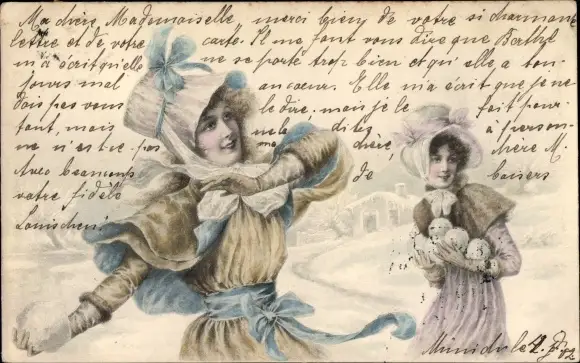 Ma chère Mademoiselle, merci bien de votre si charmante
lettre et de votre carte. Il me faut vous dire que Berthe
m'a écrit qu'elle ne se porte trop bien et qu'elle a tou-
jours mal au coeur. Elle m'a écrit que je ne
dois pas vous le dire, mais je le fait pour-
tant, mais ne le dites à person-
ne n'est-ce pas chère M.
Avec beaucoup de baisers
votre fidèle